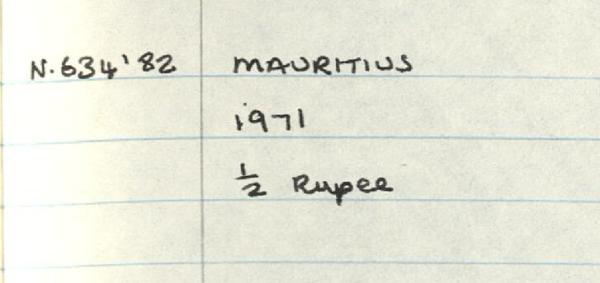 N.634'82 MAURITIUS
1971
½ Rupee